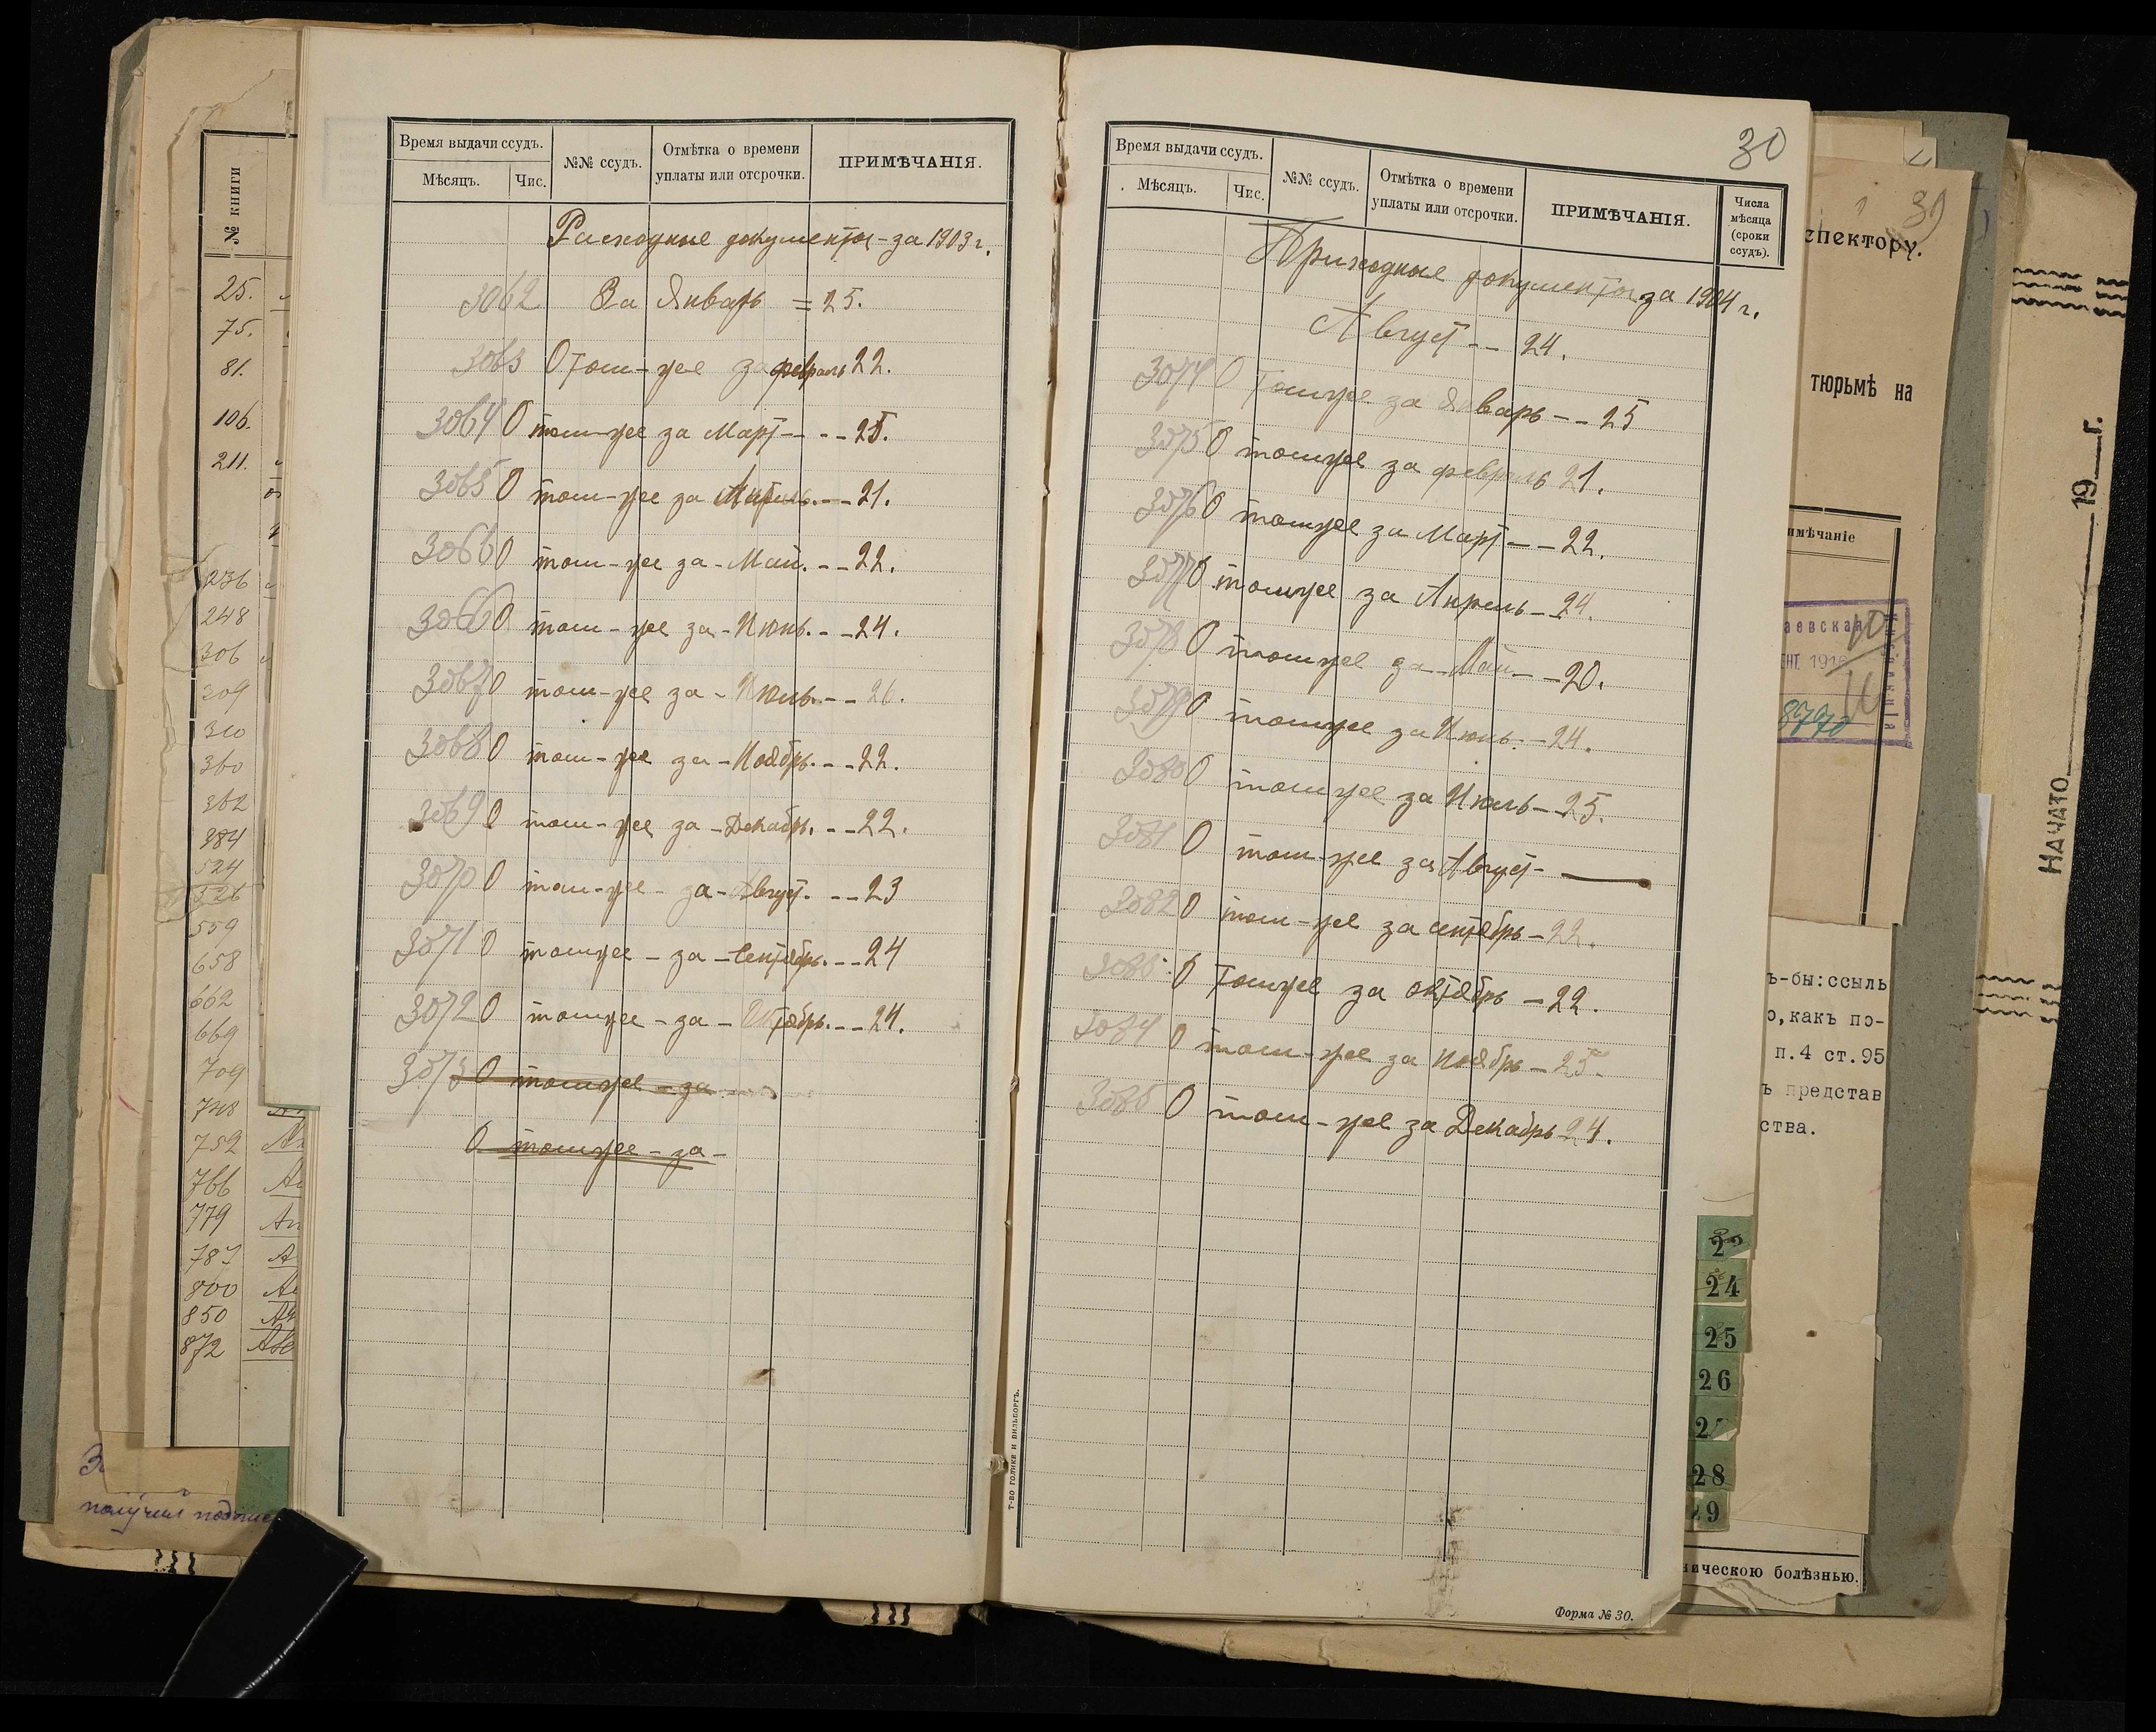 № книги
25.
75.
81.
106.
211.
236
248
306
309
310
360
362
384
524
526
559
658
662
669
709
748
752
766
779
787
800
850
872
получил
Время выдачи ссудъ.
Мѣсяцъ.
Чис.
№№ ссудъ.
Отмѣтка о времени
уплаты или отсрочки.
ПРИМѢЧАНІЯ.
Расходные документы - за 1903 г.
3062 За Январь = 25.
3063 О том-же за февраль 22.
3064 О том-же за Март - - - 25.
3065 О том-же за Апрель. - - 21.
3066 О том-же за - Май. - - 22.
3066 О том-же за - Июнь. - - 24.
3067 О том-же за - Июль. - - 26.
3068 О том-же за - Ноябрь. - - 22.
3069 О том-же за - Декабрь. - - 22.
3070 О том-же - за - Август. - - 23
3071 О томже - за - Сентябрь. - - 24
3072 О томже - за - Октябрь. - - 24.
3073 О томже - за
О томже - за -
Т-во Голике и Вильборгъ.
30
Время выдачи ссудъ.
Мѣсяцъ.
Чис.
№№ ссудъ.
Отмѣтка о времени
уплаты или отсрочки.
ПРИМѢЧАНІЯ.
Числа
мѣсяца
(сроки
ссудъ).
Приходные документы за 1904 г.
Август - - 24.
3074 О томже за Январь - - 25
3075 О томже за февраль 21.
3076 О томже за Март - - 22.
3077 О томже за Апрель - 24.
3078 О томже за - Май - - 20.
3079 О томже за Июнь. - 24.
3080 О томже за Июль - 25.
3081 О том-же за Август -
3082 О том-же за сентябрь - 22.
О томже за октябрь - 22.
3084 О том-же за Ноябрь - 25.
3085 О том-же за Декабрь 24.
Форма № 30.
спектору.
тюрьмѣ на
имѣчаніе
аевская
1916
8770
ъ-бы:ссыль
о,какъ по-
п.4 ст.95
ъ представ
ства.
24
25
26
28
29
ническою болѣзнью.
НАЧАТО 19 г.